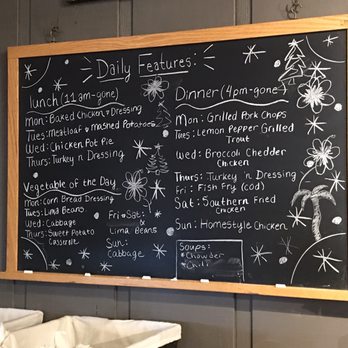 Daily Features:
lunch (11 am-gone)
Mon: Baked Chicken & Dressing
Tues: Meatloaf & mashed Potatoes
Wed: Chicken Pot Pie
Thurs: Turkey n Dressing
Vegetable of the Day
Mon: Corn Bread Dressing
Tues: Lima Beans
Wed: Cabbage
Thurs: Sweet Potato
Casserole
Fri & Sat:
Lima Beans
Sun:
Cabbage
Dinner (4pm-gone)
Mon: Grilled Pork Chops
Tues: Lemon Pepper Grilled
Trout
Wed: Broccoli Chedder
Chicken
Thurs: Turkey 'n Dressing
Fri: Fish Fry (cod)
Sat: Southern Fried
Chicken
Sun: Homestyle Chicken
Soups:
* Chowder
* Chili